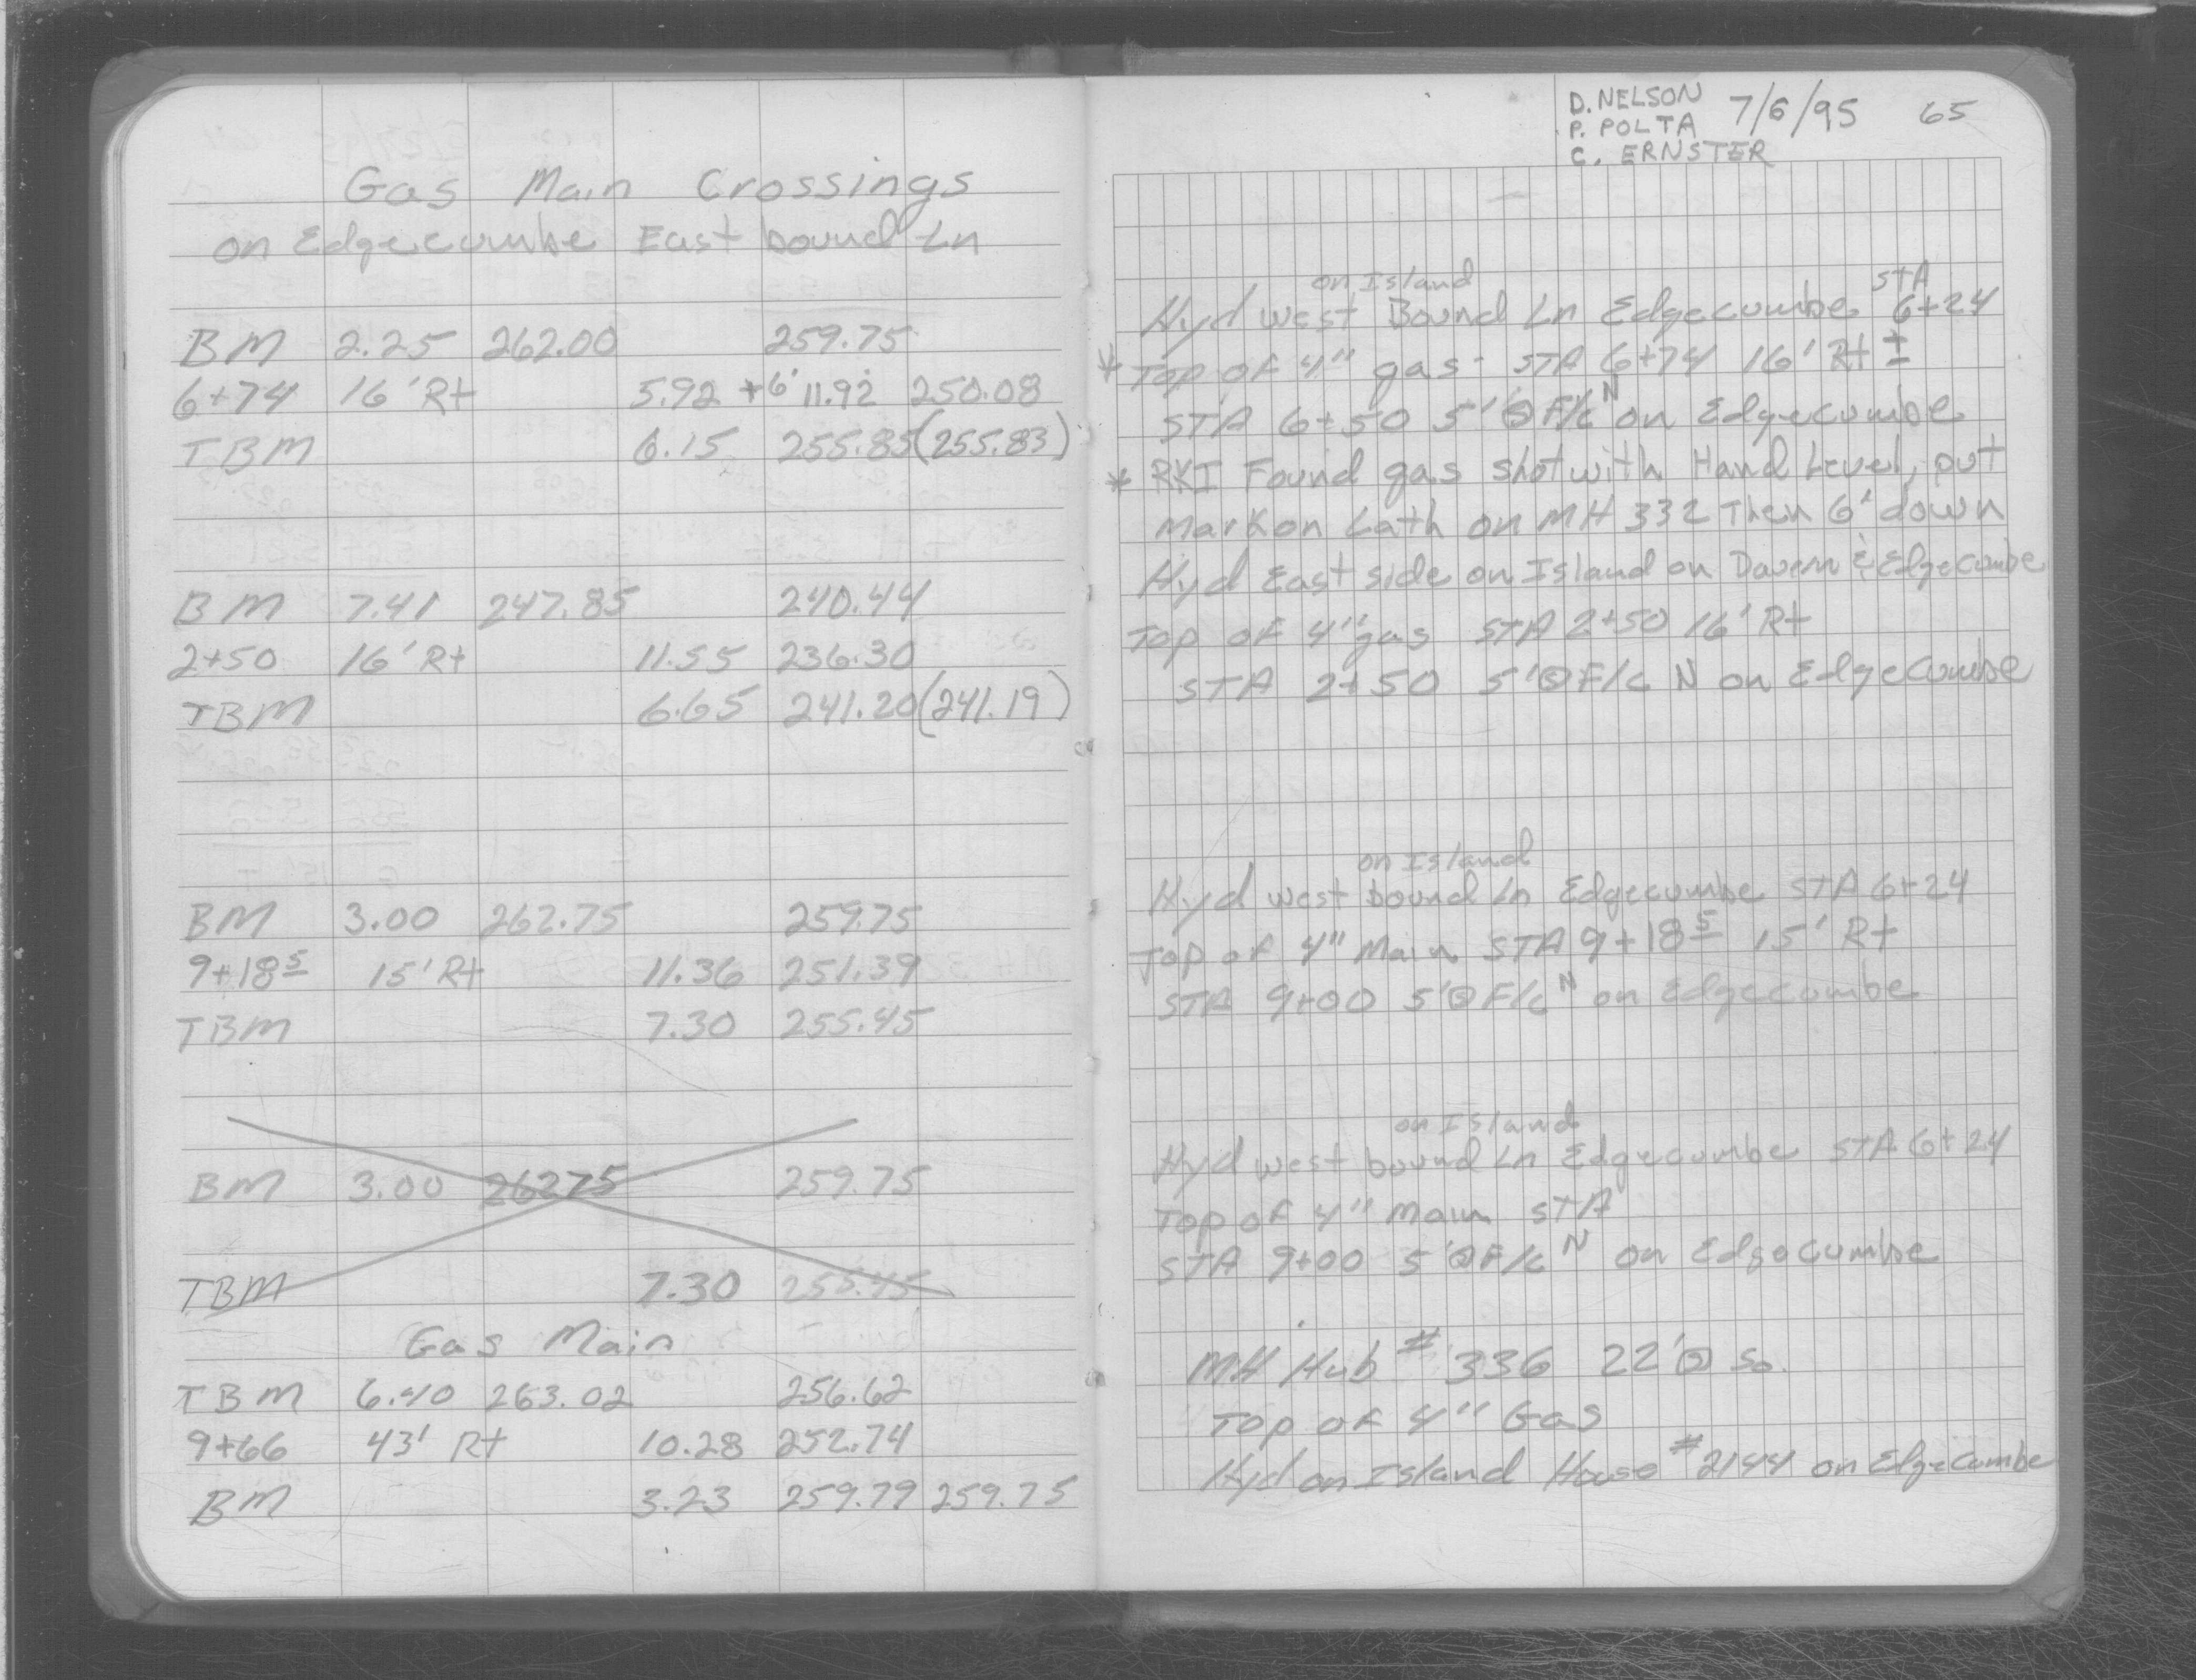 Gas Main Crossings
on Edgecumbe East bound Ln
BM 2.25 262.00 259.75
6+74 16' Rt 5.92 +6' 11.92 250.08
TBM 6.15 255.85 (255.83)
BM 7.41 247.85 240.44
2+50 16' Rt 11.55 236.30
TBM 6.65 241.20 (241.19)
BM 3.00 262.75 259.75
9+18⁵ 15' Rt 11.36 251.39
TBM 7.30 255.45
BM 3.00 262.75 259.75
TBM 7.30 255.45
Gas Main
TBM 6.40 263.02 256.62
9+66 43' Rt 10.28 252.74
BM 3.23 259.79 259.75
D. NELSON 7/6/95 65
P. POLTA
C. ERNSTER
on Island STA
Hyd West Bound Ln Edgecumbe 6+24
* Top of 4" gas - STA 6+74 16' Rt ±
STA 6+50 5' @ F/c N on Edgecumbe
* RKI Found gas shot with Hand Level, put
Mark on Lath on MH 332 Then 6' down
Hyd East side on Island on Davern & Edgecumbe
Top of 4" gas STA 2+50 16' Rt
STA 2+50 5' @ F/c N on Edgecumbe
on Island
Hyd west bound Ln Edgecumbe STA 6+24
Top of 4" Main STA 9+18⁵ 15' Rt
STA 9+00 5' @ F/c N on Edgecumbe
on Island
Hyd west bound Ln Edgecumbe STA 6+24
Top of 4" Main STA
STA 9+00 5' @ F/c N on Edgecumbe
MH Hub # 336 22' @ So.
Top of 4" Gas
Hyd on Island House # 2144 on Edgecumbe